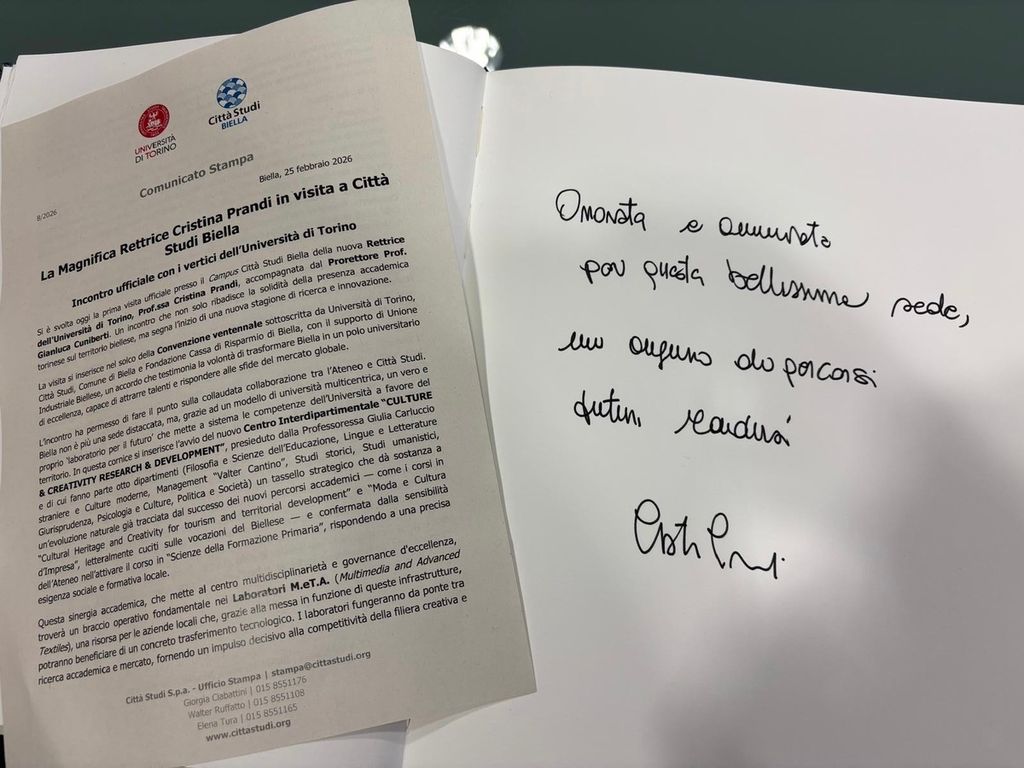 UNIVERSITÀ
DI TORINO
Città Studi
BIELLA
Comunicato Stampa
8/2026
Biella, 25 febbraio 2026
La Magnifica Rettrice Cristina Prandi in visita a Città
Studi Biella
Incontro ufficiale con i vertici dell'Università di Torino
Si è svolta oggi la prima visita ufficiale presso il Campus Città Studi Biella della nuova Rettrice
dell'Università di Torino, Prof.ssa Cristina Prandi, accompagnata dal Prorettore Prof.
Gianluca Cuniberti. Un incontro che non solo ribadisce la solidità della presenza accademica
torinese sul territorio biellese, ma segna l'inizio di una nuova stagione di ricerca e innovazione.
La visita si inserisce nel solco della Convenzione ventennale sottoscritta da Università di Torino,
Città Studi, Comune di Biella e Fondazione Cassa di Risparmio di Biella, con il supporto di Unione
Industriale Biellese, un accordo che testimonia la volontà di trasformare Biella in un polo universitario
di eccellenza, capace di attrarre talenti e rispondere alle sfide del mercato globale.
L'incontro ha permesso di fare il punto sulla collaudata collaborazione tra l'Ateneo e Città Studi.
Biella non è più una sede distaccata, ma, grazie ad un modello di università multicentrica, un vero e
proprio 'laboratorio per il futuro' che mette a sistema le competenze dell'Università a favore del
territorio. In questa cornice si inserisce l'avvio del nuovo Centro Interdipartimentale "CULTURE
& CREATIVITY RESEARCH & DEVELOPMENT", presieduto dalla Professoressa Giulia Carluccio
e di cui fanno parte otto dipartimenti (Filosofia e Scienze dell'Educazione, Lingue e Letterature
straniere e Culture moderne, Management "Valter Cantino", Studi storici, Studi umanistici,
Giurisprudenza, Psicologia e Culture, Politica e Società) un tassello strategico che dà sostanza a
un'evoluzione naturale già tracciata dal successo dei nuovi percorsi accademici — come i corsi in
"Cultural Heritage and Creativity for tourism and territorial development" e "Moda e Cultura
d'Impresa", letteralmente cuciti sulle vocazioni del Biellese — e confermata dalla sensibilità
dell'Ateneo nell'attivare il corso in "Scienze della Formazione Primaria", rispondendo a una precisa
esigenza sociale e formativa locale.
Questa sinergia accademica, che mette al centro multidisciplinarietà e governance d'eccellenza,
troverà un braccio operativo fondamentale nei Laboratori M.eT.A. (Multimedia and Advanced
Textiles), una risorsa per le aziende locali che, grazie alla messa in funzione di queste infrastrutture,
potranno beneficiare di un concreto trasferimento tecnologico. I laboratori fungeranno da ponte tra
ricerca accademica e mercato, fornendo un impulso decisivo alla competitività della filiera creativa e
Città Studi S.p.a. - Ufficio Stampa | stampa@cittastudi.org
Giorgia Ciabattini | 015 8551176
Walter Ruffatto | 015 8551108
Elena Tura | 015 8551165
www.cittastudi.org
Onorata e ammirata
per questa bellissima sede,
un augurio di percorsi
futuri condivisi